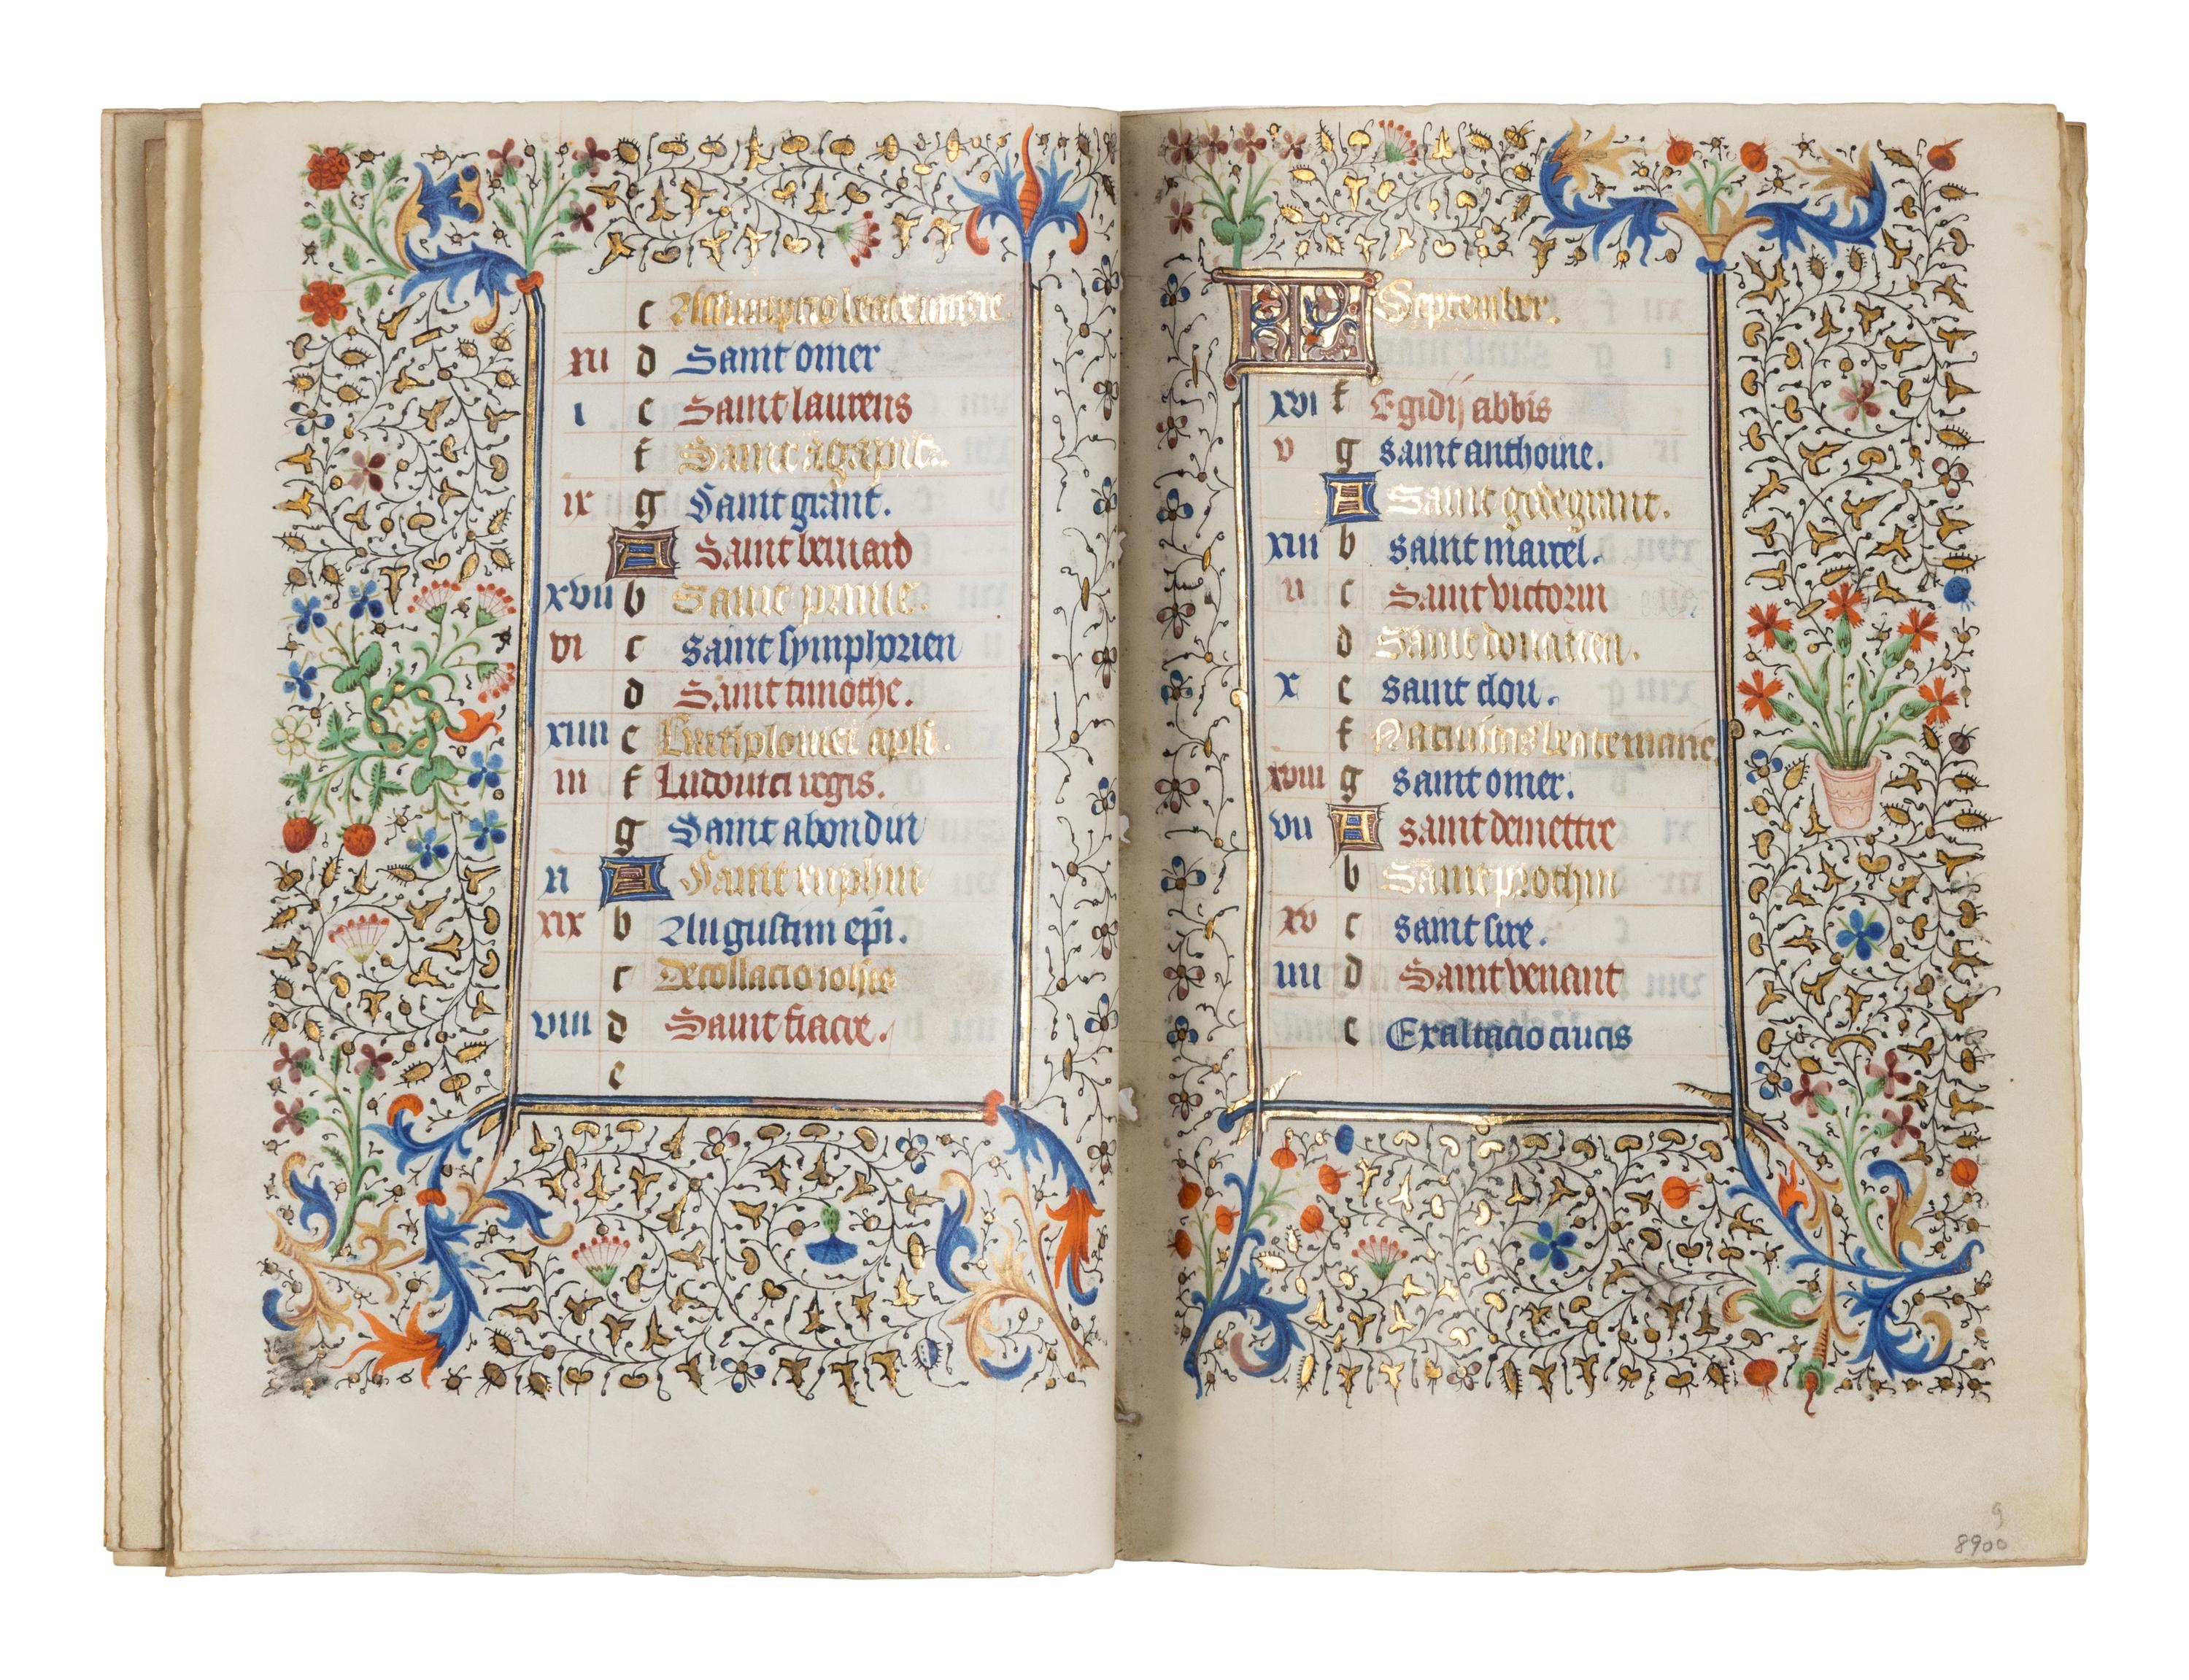 c Assumptio beate marie.
xii d Saint omer
i e Saint laurens
f Saint agapit.
ix g Saint grant.
A Saint bernard
xvii b Saint priue.
vi c saint symphorien
d Saint timothe.
xiiii e Bartholomei apli.
iii f Ludouici regis.
g Saint abondin
xi A Saint ruphin
xix b Augustini epi.
c Decollacio iohis
viii d Saint fiacre.
e
KL September.
xvi f Egidij abbis
v g saint anthoine.
A Saint godegrant.
xiii b saint marcel.
ii c Saint victorin
d Saint donatien.
x e saint clou.
f Natiuitas beate marie.
xviii g saint omer.
vii A saint demettre
b Saint prothin
xv c saint sire.
iiii d Saint venant
e Exaltacio crucis
9
8900